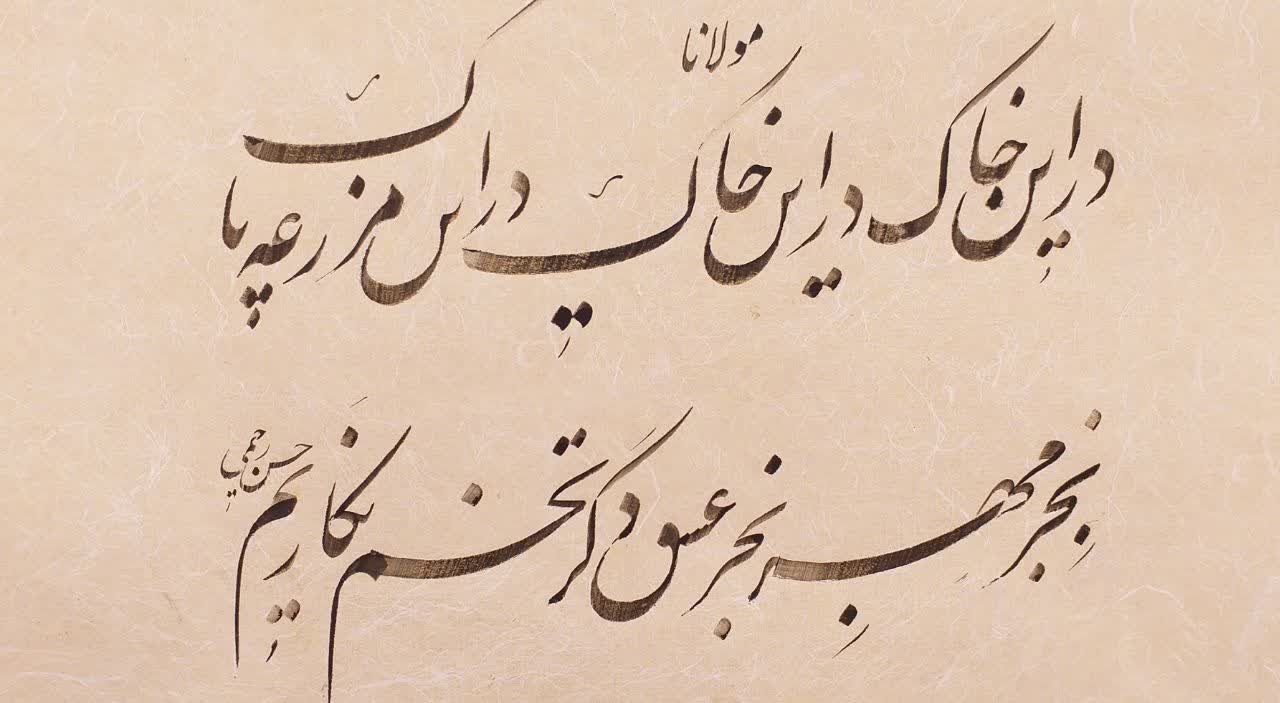 مولانا
در این خاک در این خاک در این مزرعه پاک
بجز مهر بجز عشق دگر تخم نکاریم
حسن رحیمی